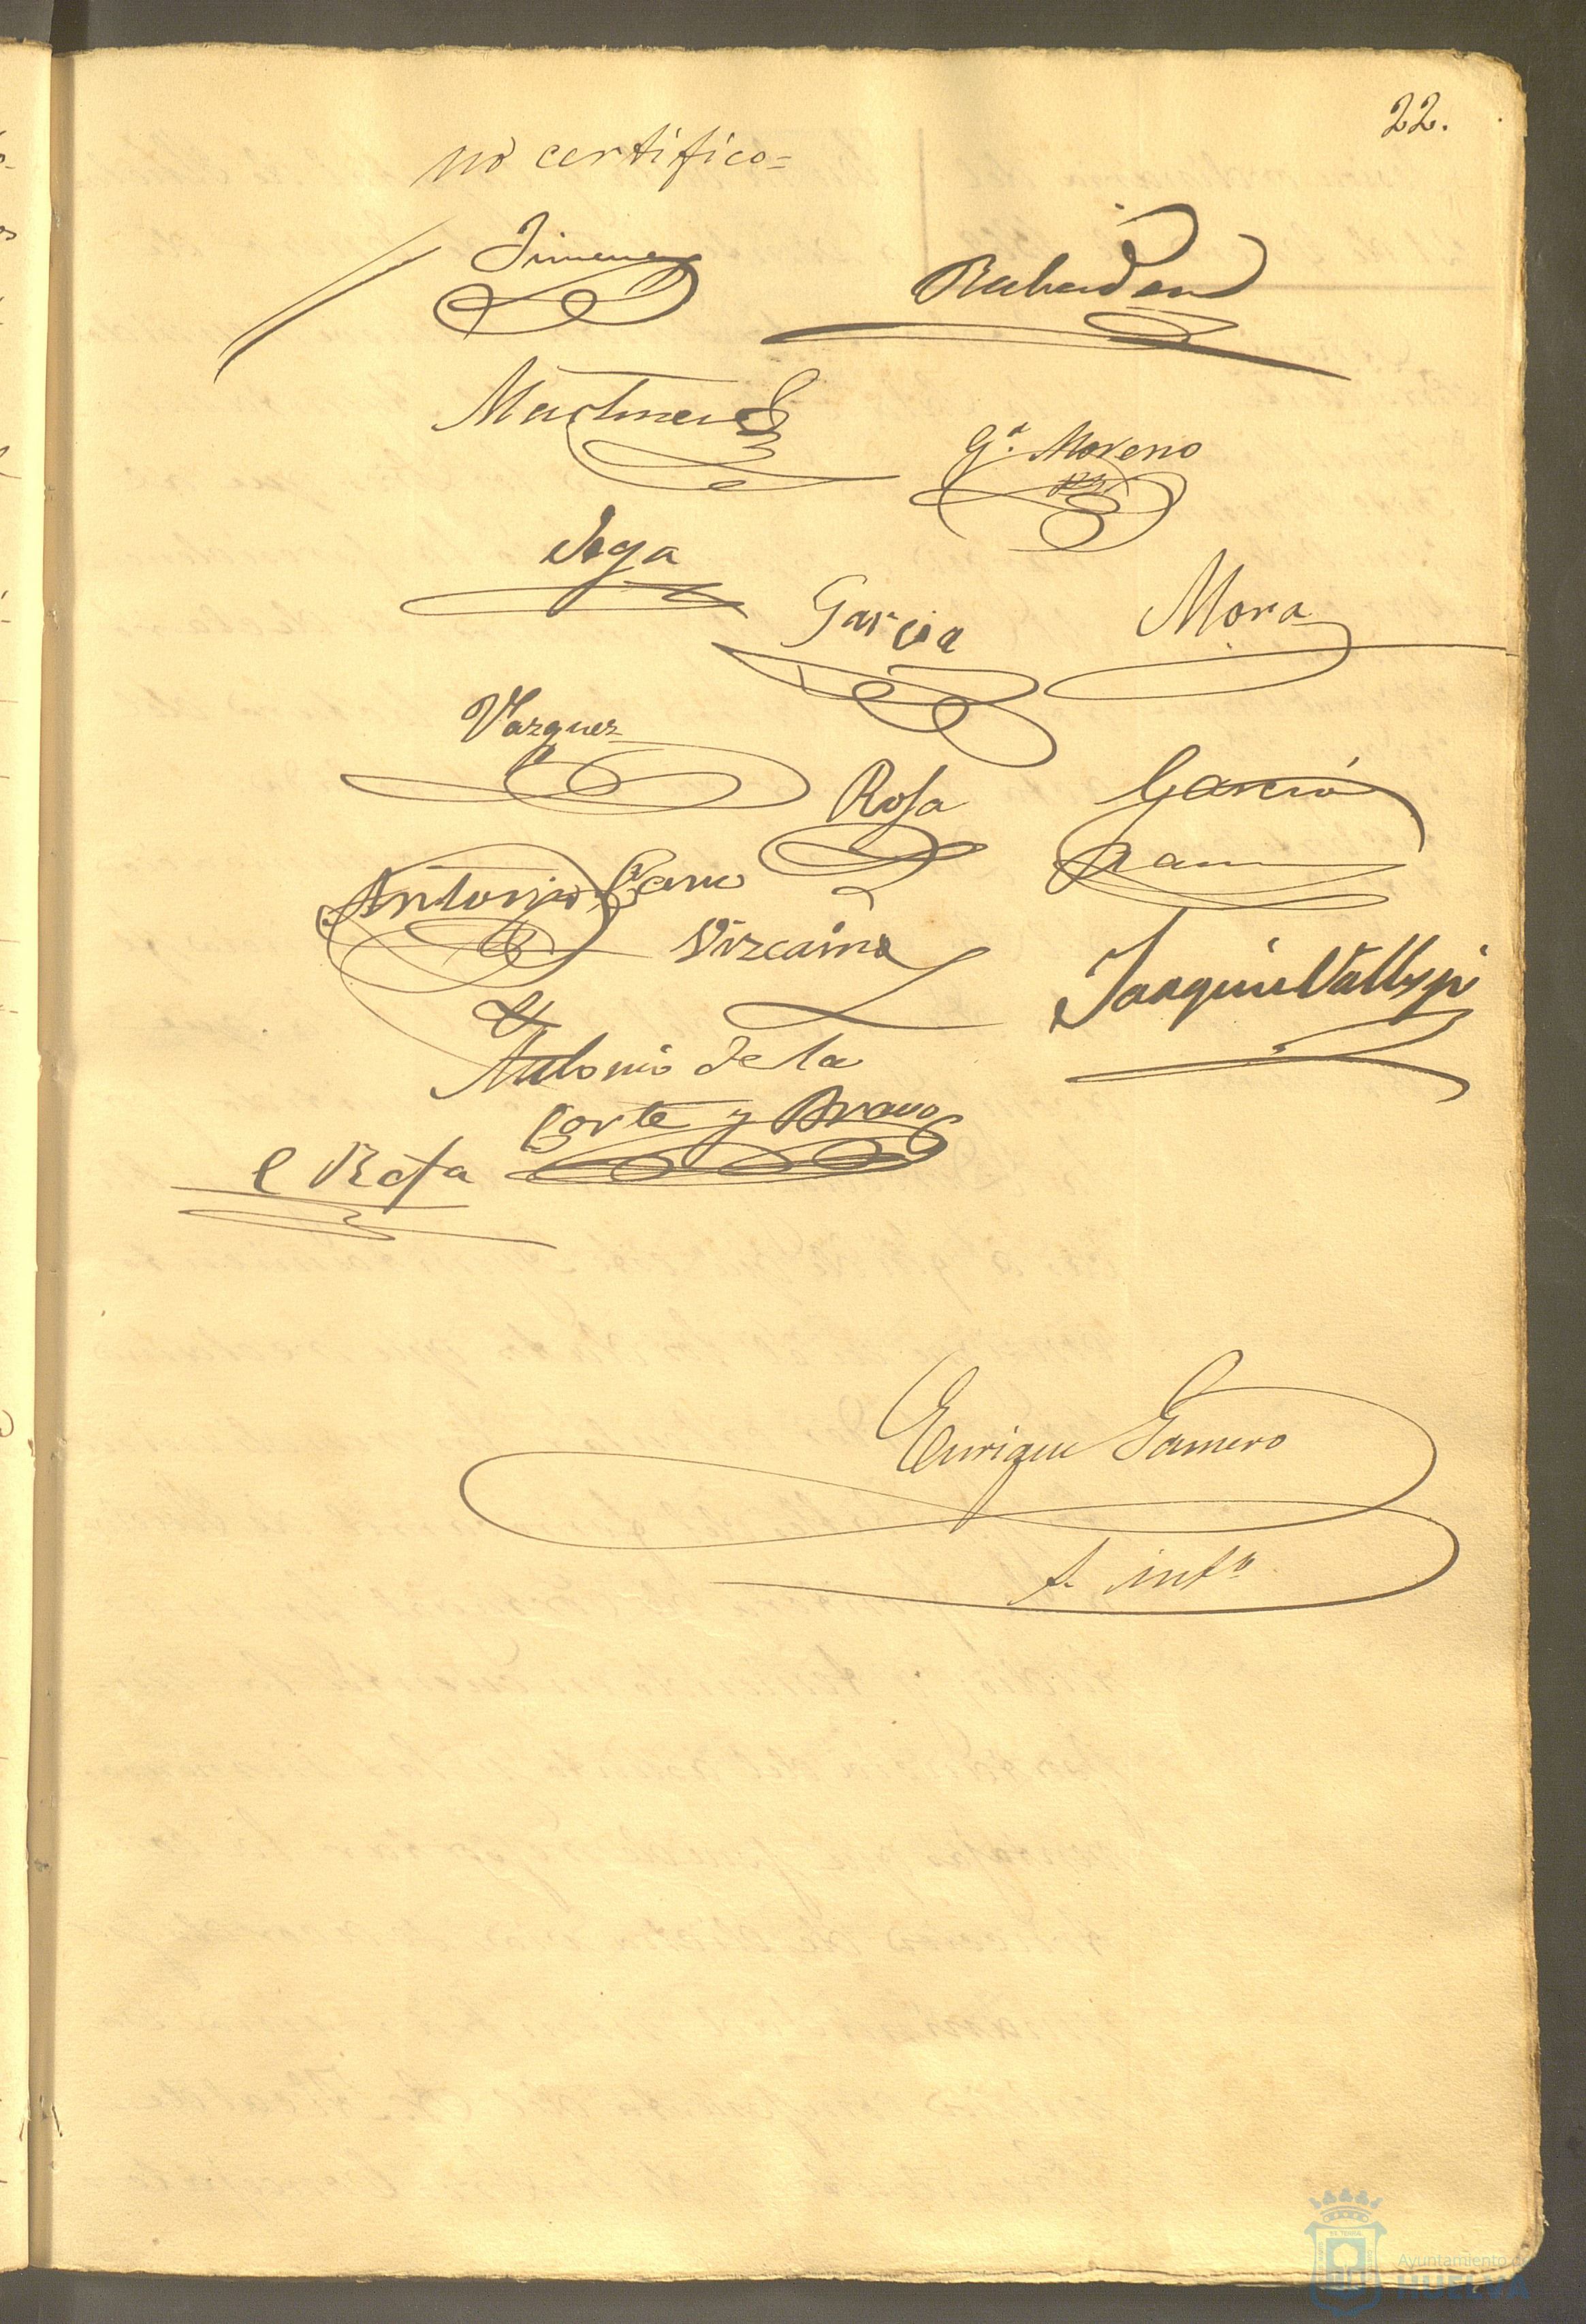 22.
no certifico=
Jimenez
Rabadan
Martinez
Ga. Moreno
Vega
Garcia
Mora
Vazquez
Rosa
Garcia
Ram
Antonio Cano
Vizcaino
Joaquin Vallespi
Antonio de la
Corte y Bravo
C Rosa
Enrique Gamero
S. intº
Ayuntamiento de
HUELVA